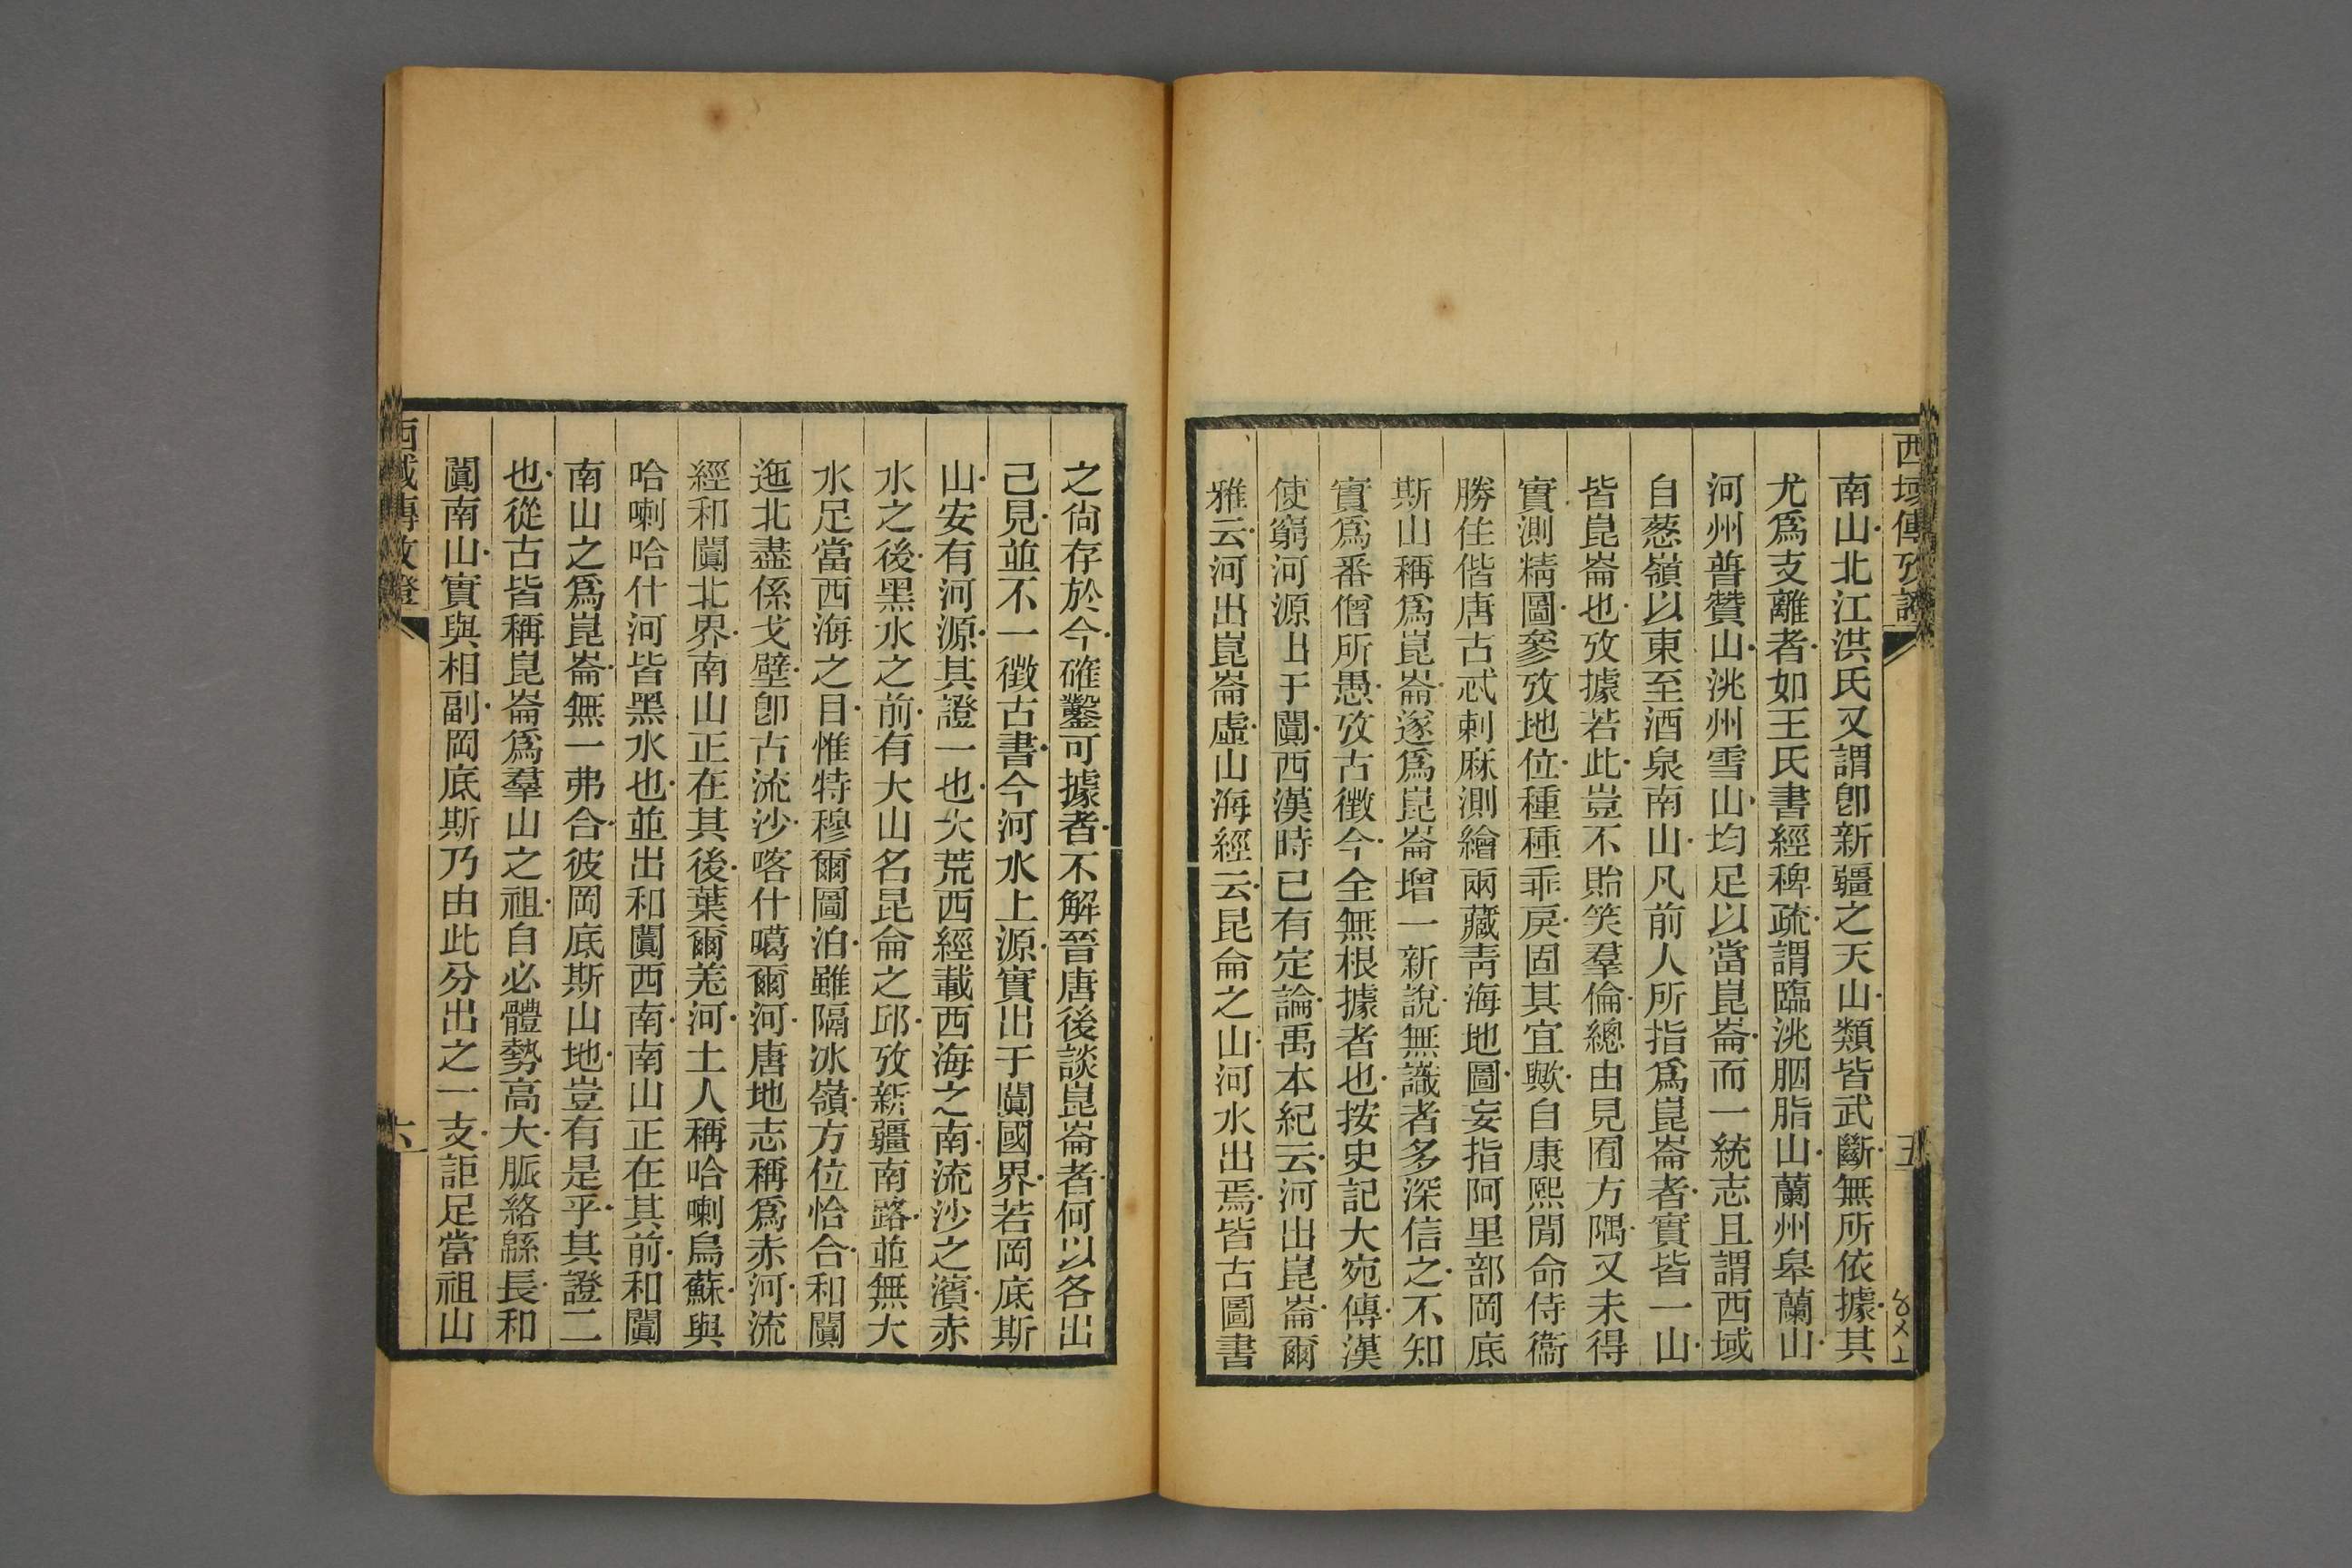 西域傳攷證
五
南山北江洪氏又謂卽新疆之天山類皆武斷無所依據其
尤爲支離者如王氏書經稗疏謂臨洮胭脂山蘭州皋蘭山
河州普贊山洮州雪山均足以當崑崙而一統志且謂西域
自葱嶺以東至酒泉南山凡前人所指爲崑崙者實皆一山
皆崑崙也攷據若此豈不貽笑羣倫總由見囿方隅又未得
實測精圖參攷地位種種乖戾固其宜歟自康熙閒命侍衞
勝住偕唐古忒刺麻測繪兩藏靑海地圖妄指阿里部岡底
斯山稱爲崑崙遂爲崑崙增一新說無識者多深信之不知
實爲番僧所愚攷古徵今全無根據者也按史記大宛傳漢
使窮河源出于闐西漢時已有定論禹本紀云河出崑崙爾
雅云河出崑崙虛山海經云昆侖之山河水出焉皆古圖書
之尙存於今確鑿可據者不解晉唐後談崑崙者何以各出
己見並不一徵古書今河水上源實出于闐國界若岡底斯
山安有河源其證一也大荒西經載西海之南流沙之濱赤
水之後黑水之前有大山名昆侖之邱攷新疆南路並無大
水足當西海之目惟特穆爾圖泊雖隔冰嶺方位恰合和闐
迤北盡係戈壁卽古流沙喀什噶爾河唐地志稱爲赤河流
經和闐北界南山正在其後葉爾羌河土人稱哈喇烏蘇與
哈喇哈什河皆黑水也並出和闐西南南山正在其前和闐
南山之爲崑崙無一弗合彼岡底斯山地豈有是乎其證二
也從古皆稱崑崙爲羣山之祖自必體勢高大脈絡緜長和
闐南山實與相副岡底斯乃由此分出之一支詎足當祖山
西域傳攷證
六